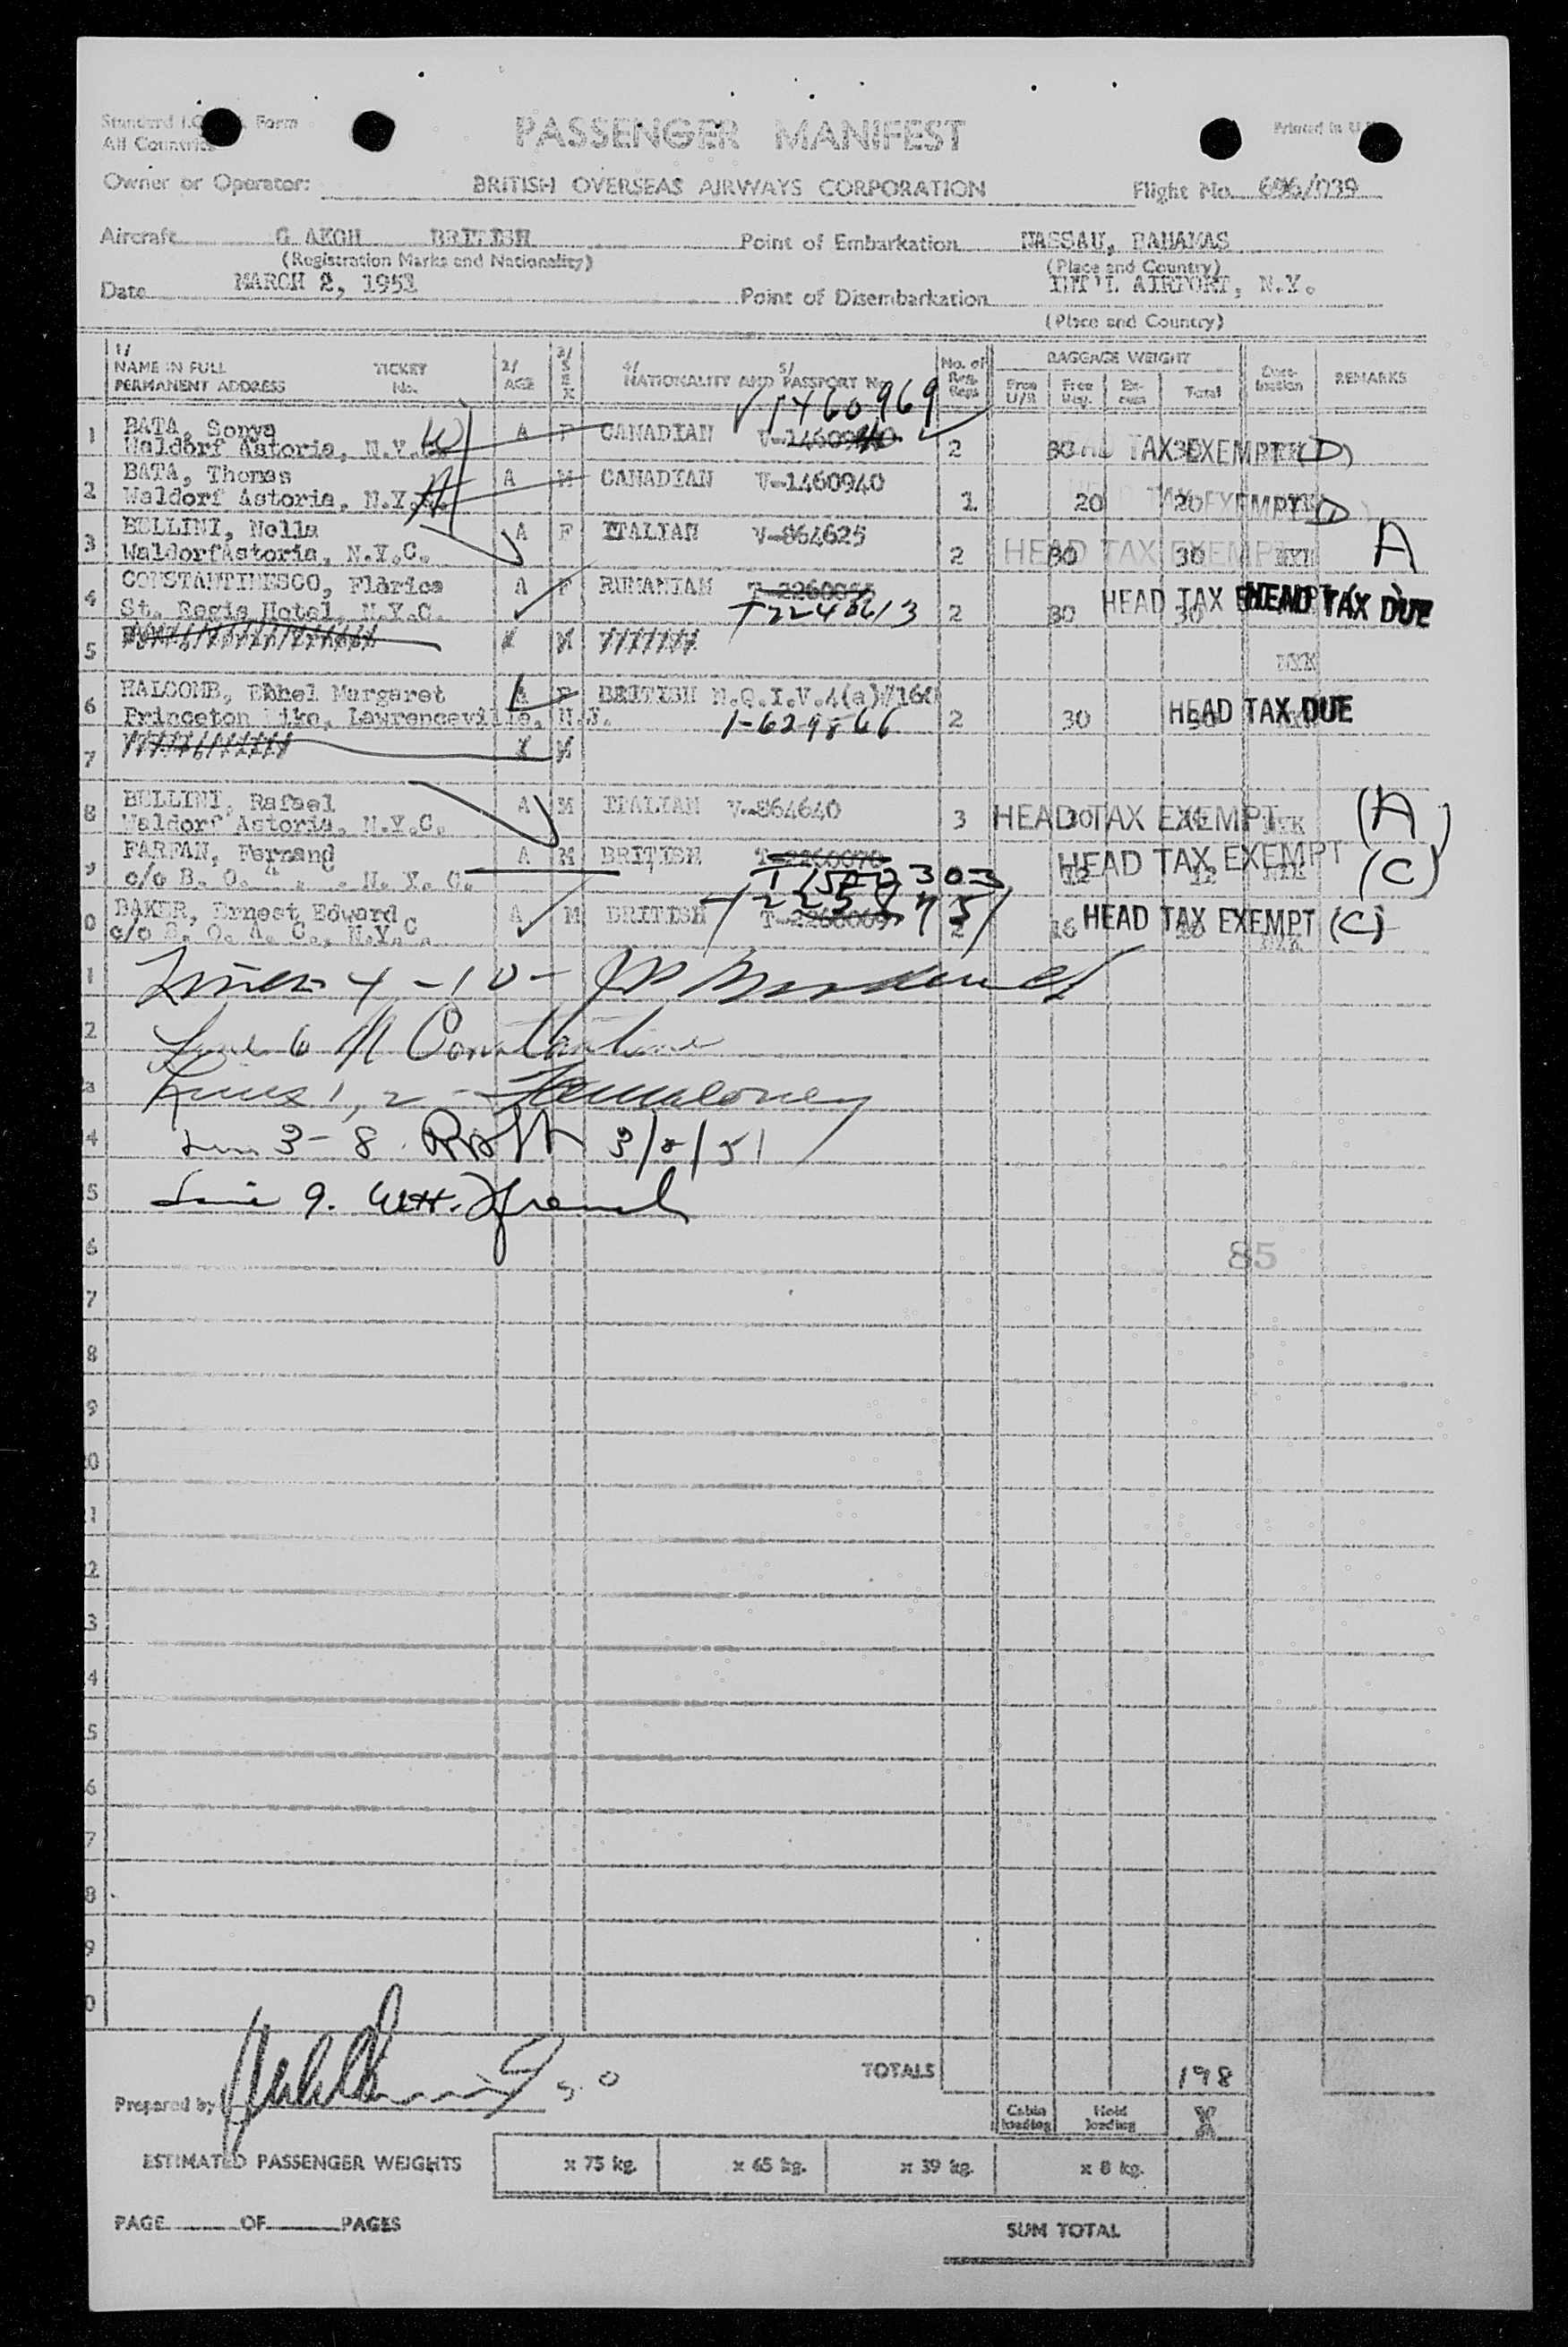 Standard I.C. Form
All Countries
PASSENGER MANIFEST
Printed in U
Owner or Operator: BRITISH OVERSEAS AIRWAYS CORPORATION Flight No. 696/039
Aircraft G AKGH BRITISH Point of Embarkation NASSAU, BAHAMAS
(Registration Marks and Nationality) (Place and Country)
Date MARCH 2, 1951 Point of Disembarkation INT'L AIRPORT, N.Y.
(Place and Country)
1/ NAME IN FULL PERMANENT ADDRESS TICKET No. 2/ AGE 3/ SEX 4/ 5/ NATIONALITY AND PASSPORT No. No. of BAGGAGE WEIGHT Free Total REMARKS
√1460969
1 BATA, Sonya A F CANADIAN V-1460940 2 30 30 HEAD TAX EXEMPT (D)
Waldorf Astoria, N.Y.C.
2 BATA, Thomas A M CANADIAN V-1460940 1 20 20 TAX EXEMPT D
Waldorf Astoria, N.Y.C.
3 BULLINI, Nella A F ITALIAN V-864625 2 30 30 HEAD TAX EXEMPT NYK A
WaldorfAstoria, N.Y.C.
4 CONSTANTINESCO, Flarica A F RUMANIAN 2 30 30 HEAD TAX HEAD TAX DUE
St. Regis Hotel, N.Y.C.
5 NYK
6 HALCOMB, Ethel Margaret A F BRITISH N.Q.I.V.4(a)#160 2 30 30 HEAD TAX DUE
Princeton Pike, Lawrenceville, N.J.
7
8 BULLINI, Rafael A M ITALIAN V-864640 3 HEAD TAX EXEMPT NYK (A)
Waldorf Astoria, N.Y.C.
9 FARFAN, Fernand A M BRITISH T-2260070 12 12 HEAD TAX EXEMPT (C)
c/o B. O. A. N. Y. C.
0 BAKER, Ernest Edward A M BRITISH T-2260069 2 16 HEAD TAX EXEMPT (C)
c/o B. O. A. C., N.Y.C.
1 Lines 4 - 10 -
2 Line 6 N Constantine
3 Lines 1, 2 -
4 3 - 8 3/2/51
5 Line 9. W.H. French
6 85
7
8
9
0
1
2
3
4
5
6
7
8
9
0
TOTALS 198
Prepared by
Cabin loading Hold loading X
ESTIMATED PASSENGER WEIGHTS x 75 kg. x 65 kg. x 39 kg. x 8 kg.
PAGE OF PAGES SUM TOTAL